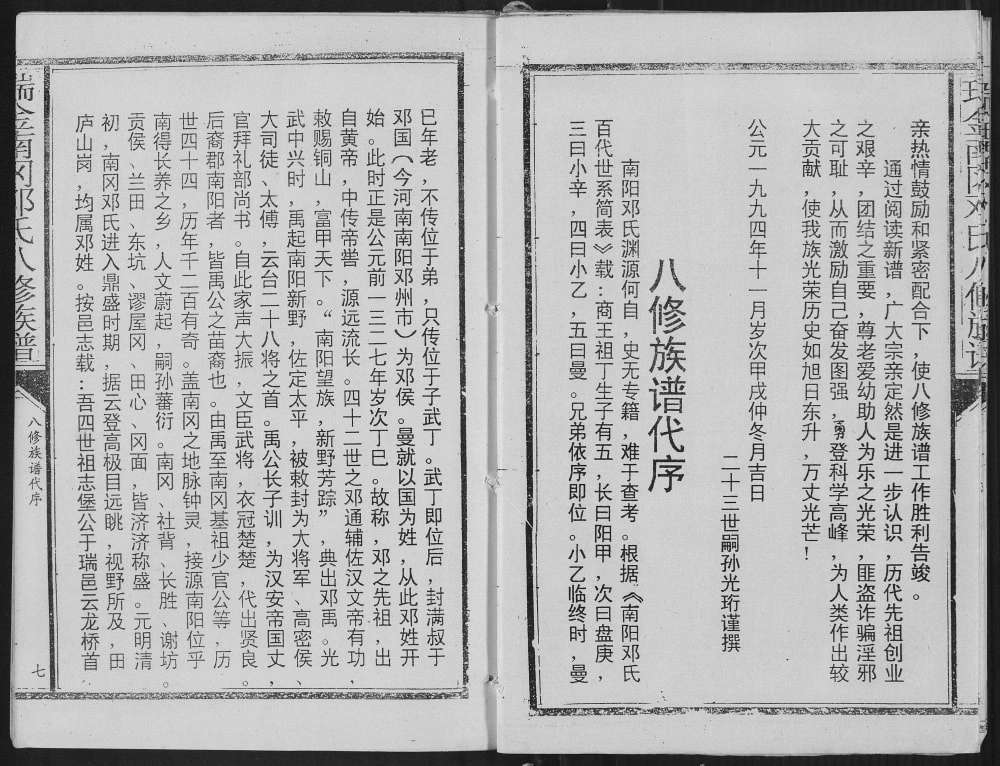 亲热情鼓励和紧密配合下，使八修族谱工作胜利告竣。
通过阅读新谱，广大宗亲定然是进一步认识，历代先祖创业
之艰辛，团结之重要，尊老爱幼助人为乐之光荣，匪盗诈骗淫邪
之可耻，从而激励自己奋发图强，勇登科学高峰，为人类作出较
大贡献，使我族光荣历史如旭日东升，万丈光芒！
二十三世嗣孙光珩谨撰
公元一九九四年十一月岁次甲戌仲冬月吉日
八修族谱代序
南阳邓氏渊源何自，史无专籍，难于查考。根据《南阳邓氏
百代世系简表》载：商王祖丁生子有五，长曰阳甲，次曰盘庚，
三曰小辛，四曰小乙，五曰曼。兄弟依序即位。小乙临终时，曼
已年老，不传位于弟，只传位于子武丁。武丁即位后，封满叔于
邓国（今河南南阳邓州市）为邓侯。曼就以国为姓，从此邓姓开
始。此时正是公元前一三二七年岁次丁巳。故称，邓之先祖，出
自黄帝，中传帝喾，源远流长。四十二世之邓通辅佐汉文帝有功，
敕赐铜山，富甲天下。“南阳望族，新野芳踪”，典出邓禹。光
武中兴时，禹起南阳新野，佐定太平，被敕封为大将军、高密侯、
大司徒、太傅，云台二十八将之首。禹公长子训，为汉安帝国丈，
官拜礼部尚书。自此家声大振，文臣武将，衣冠楚楚，代出贤良。
后裔郡南阳者，皆禹公之苗裔也。由禹至南冈基祖少官公等，历
世四十四，历年千二百有奇。盖南冈之地脉钟灵，接源南阳位乎
南得长养之乡，人文蔚起，嗣孙蕃衍。南冈、社背、长胜、谢坊、
贡侯、兰田、东坑、谬屋冈、田心、冈面，皆济济称盛。元明清
初，南冈邓氏进入鼎盛时期，据云登高极目远眺，视野所及，田
庐山岗，均属邓姓。按邑志载：吾四世祖志堡公于瑞邑云龙桥首
瑞金南冈邓氏八修族谱
八修族谱代序
七